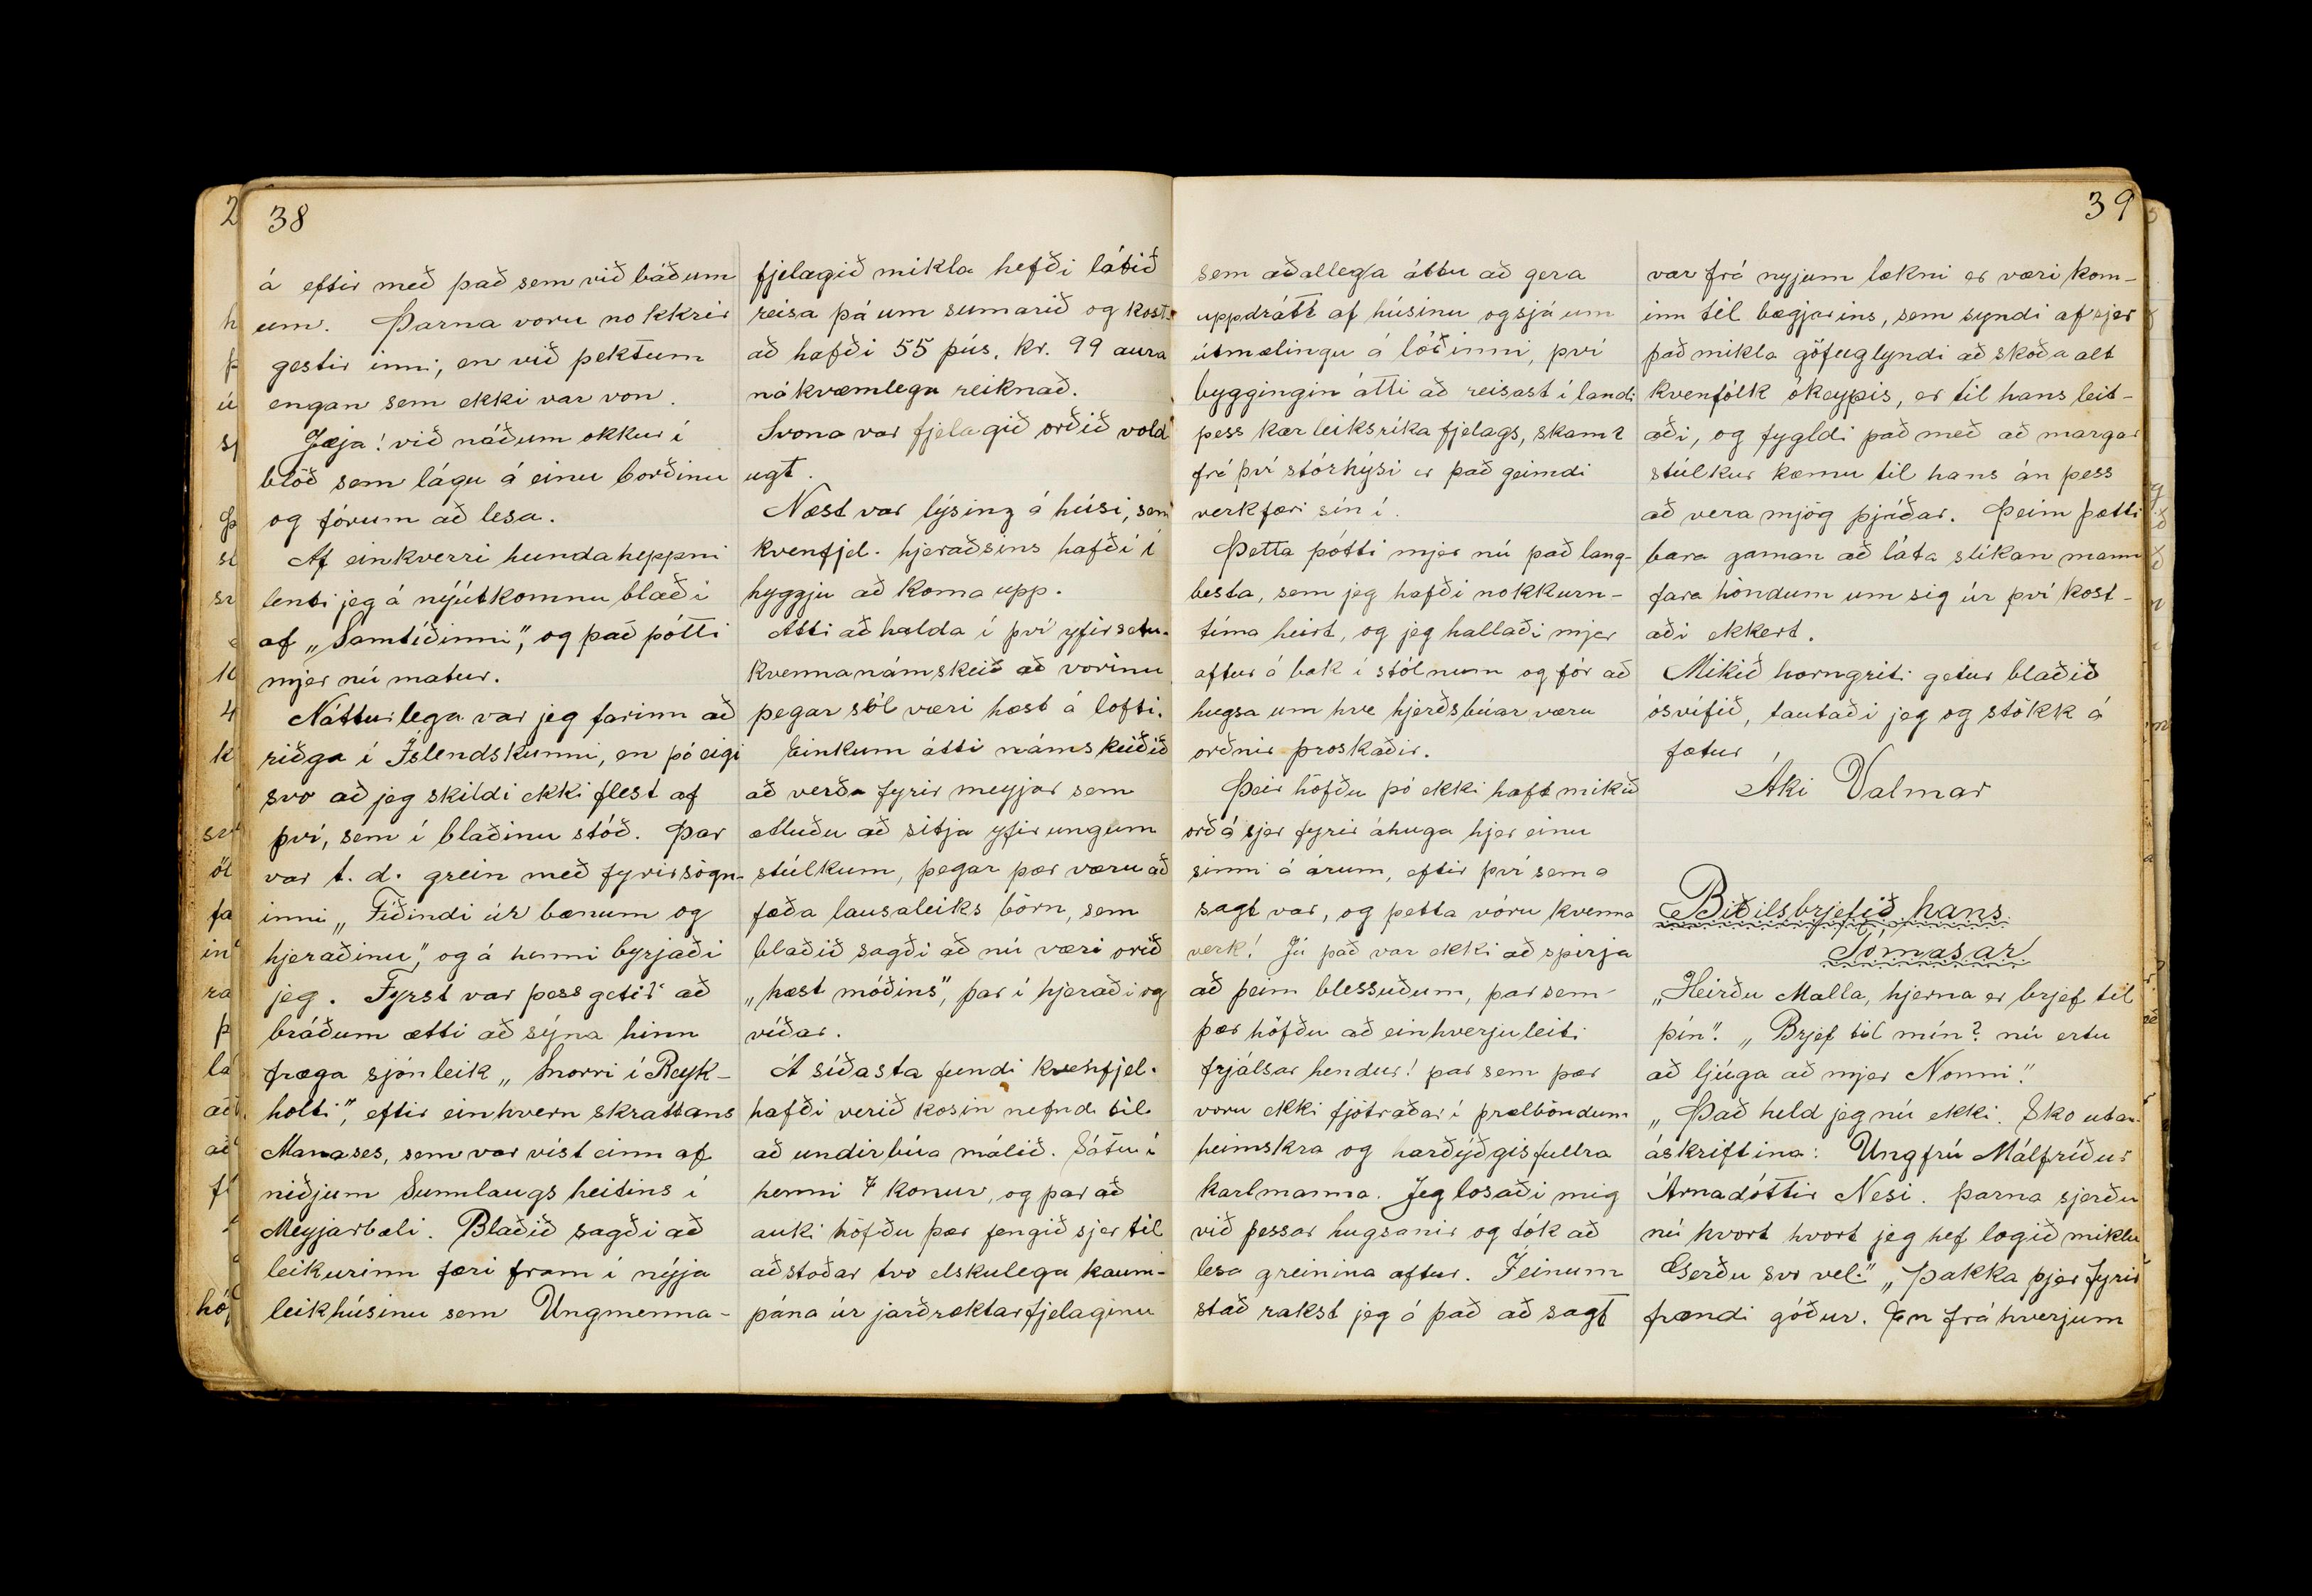 38
á eftir með það sem við báðum
um. Þarna voru nokkrir
gestir inni, en við þektum
engan sem ekki var von.
Jæja! við náðum okkur í
blöð sem lágu á einu borðinu
og fórum að lesa.
Af einkverri hundaheppni
lenti jeg á nýútkomnu blaði
af „Samtíðinni“, og það þótti
mjer nú matur.
Nátturlega var jeg farinn að
riðga í Íslendskunni, en þó eigi
svo að jeg skildi ekki flest af
því, sem í blaðinu stóð. Þar
var t.d. grein með fyrirsögn-
inni „Tíðindi úr bænum og
hjeraðinu“, og á henni byrjaði
jeg. Fyrst var þess getið að
bráðum ætti að sýna hinn
fræga sjónleik „Snorri í Reyk-
holti“, eftir einhvern skrattans
Manases, sem var víst einn af
niðjum Sunnlaugs heitins í
Meyjarbæli. Blaðið sagði að
leikurinn færi fram í nýja
leikhúsinu sem Ungmenna-
fjelagið mikla hefði látið
reisa þá um sumarið og kost-
að hafði 55 þús. kr. 99 aura
nákvæmlega reiknað.
Svona var fjelagið orðið vold
ugt.
Næst var lýsing á húsi, sem
kvenfjel. hjeraðsins hafði í
hyggju að koma upp.
Átti að halda í því yfirsetu-
kvennanámskeið að vorinu
þegar sól væri hæst á lofti.
Einkum átti námskeiðið
að verða fyrir meyjar sem
ætluðu að sitja yfir ungum
stúlkum, þegar þær væru að
fæða lausaleiks börn, sem
blaðið sagði að nú væri orið
„hæst móðins“, þar í hjeraði og
víðar.
Á síðasta fundi kvenfjel.
hafði verið kosin nefnd til
að undirbúa málið. Sátu í
henni 7 konur, og þar að
auki höfðu þær fengið sjer til
aðstoðar tvo elskulega kaum-
pána úr jarðræktarfjelaginu
39
sem aðallega áttu að gera
uppdrátt af húsinu og sjá um
útmælingu á lóðinni, því
byggingin átti að reisast í landi
þess kærleiksríka fjelags, skamt
frá því stórhýsi er það geimdi
verkfæri sín í.
Þetta þótti mjer nú það lang-
besta, sem jeg hafði nokkurn-
tíma heirt, og jeg hallaði mjer
aftur á bak í stólnum og fór að
hugsa um hve hjerðsbúar væru
orðnir þroskaðir.
Þeir höfðu þó ekki haft mikið
orð á sjer fyrir áhuga hjer einu
sinni á árum, eftir því sem
sagt var, og þetta vóru kvenna
verk! Já það var ekki að spirja
að þeim blessuðum, þar sem
þær höfðu að einhverju leiti
frjálsar hendur! þar sem þær
voru ekki fjötraðar í þrælböndum
heimskra og harðýðgisfullra
karlmanna. Jeg losaði mig
við þessar hugsanir og tók að
lesa greinina aftur. Í einum
stað rakst jeg á það að sagt
var frá nyjum lækni er væri kom-
inn til bægjarins, sem syndi af sjer
það mikla göfuglyndi að skoða alt
kvenfólk ókeypis, er til hans leit-
aði, og fygldi það með að margar
stúlkur kæmu til hans án þess
að vera mjög þjáðar. Þeim þætti
bara gaman að láta slíkan mann
fara höndum um sig úr því kost-
aði ekkert.
Mikið horngríti getur blaðið
ósvífið, tautaði jeg og stökk á
fætur
Áki Valmar
Biðilsbrjefið hans
Tómasar
„Heirðu Malla, hjerna er brjef til
þín“. „Brjef til mín? nú ertu
að ljúga að mjer Nonni“.
„Það held jeg nú ekki. Sko utan-
áskriftina: Ungfrú Málfríður
Árnadóttir Nesi. þarna sjerðu
nú hvort hvort jeg hef logið miklu
Gerðu svo vel.“ „Þakka þjer fyrir
frændi góður. En frá hverjum